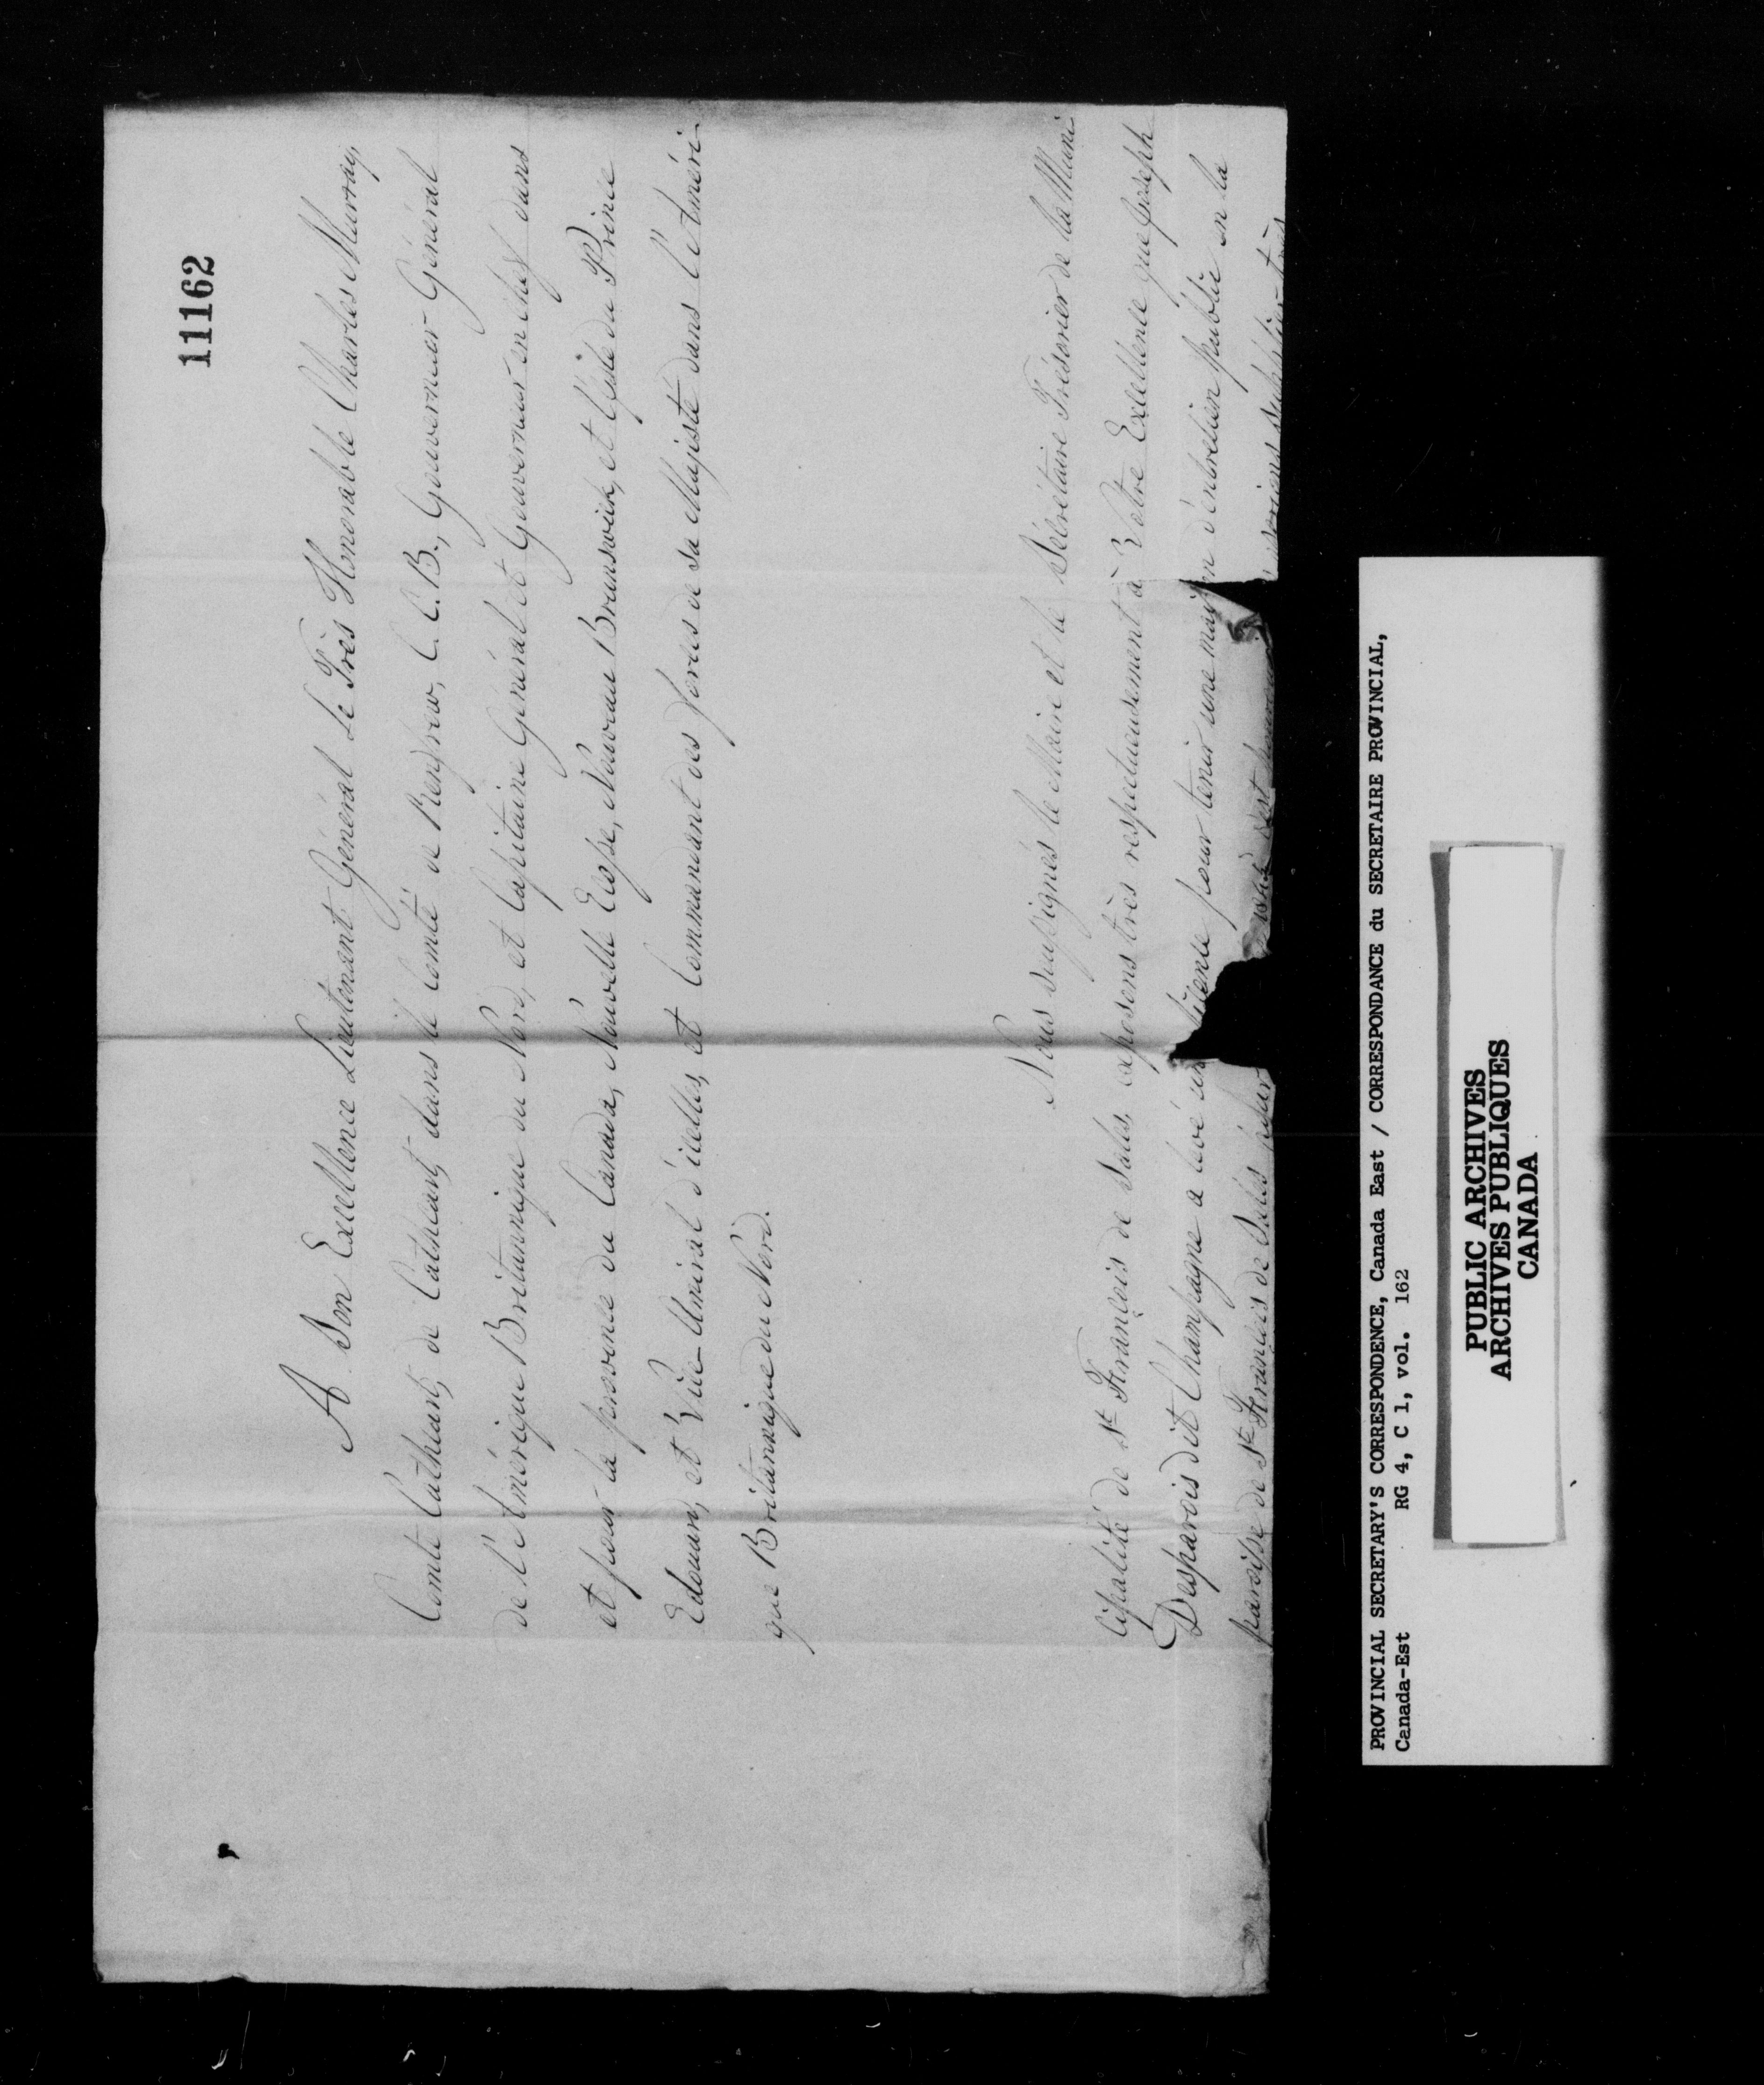 11162
A Son Excellence Lieutenant Général Le Très Honorable Charles Murray,
Comte Cathcart, de Cathcart, dans le Comté de Renfrew, C. C. B., Gouverneur-Général
de l'Amérique Britannique du Nord, et Capitaine Général et Gouverneur en Chef dans
et pour la province du Canada, Nouvelle Ecosse, Nouveau Brunswick, et l'Isle du Prince
Edouard, et Vice-Amiral d'icelles, et Commandant des forces de Sa Majesté dans l'Améri-
que Britannique du Nord.
Nous soussignés le Maire et le Sécrétaire Trésorier de la Muni
cipalité de St. François de Sales, exposons très respectueusement à Votre Excellence que Joseph
Desparois dit Champagne a levé une licence pour tenir une maison d'entretien public en la
paroisse de St. François de Sales pour
PROVINCIAL SECRETARY'S CORRESPONDENCE, Canada East / CORRESPONDANCE du SECRETAIRE PROVINCIAL,
Canada-Est RG 4, C 1, vol. 162
PUBLIC ARCHIVES
ARCHIVES PUBLIQUES
CANADA